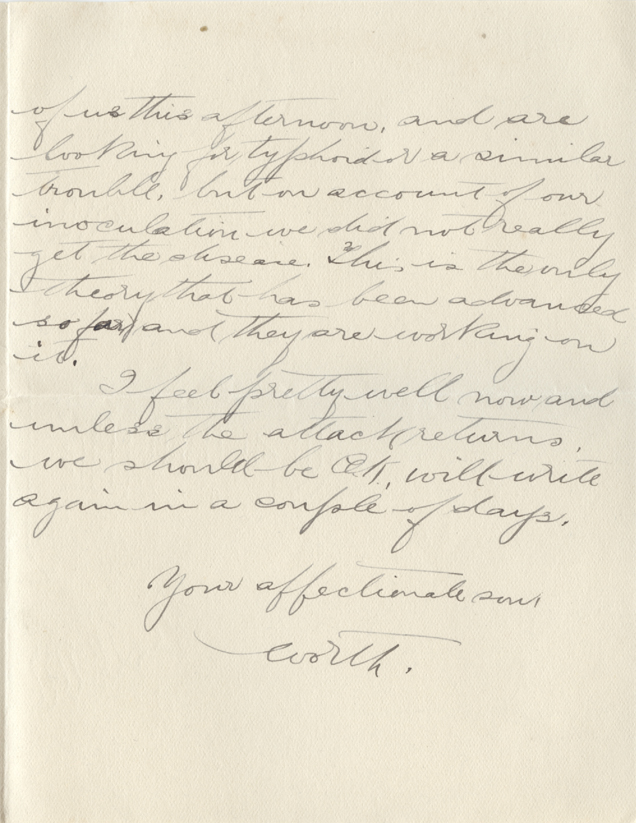 of us this afternoon, and are
looking for typhoid or a similar
trouble, but on account of our
inoculation we did not really
get the disease. This is the only
theory that has been advanced
so far and they are working on
it.
I feel pretty well now and
unless the attack returns,
we should be O.K., will write
again in a couple of days.
Your affectionate son,
Worth.